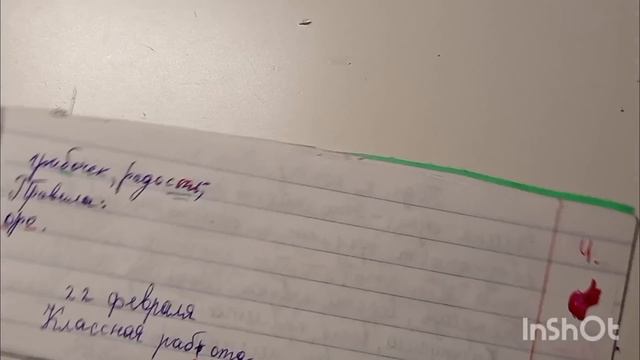 грибочек, радость,
Правила:
ора.
4.
22 февраля
Классная работа.
InShOt